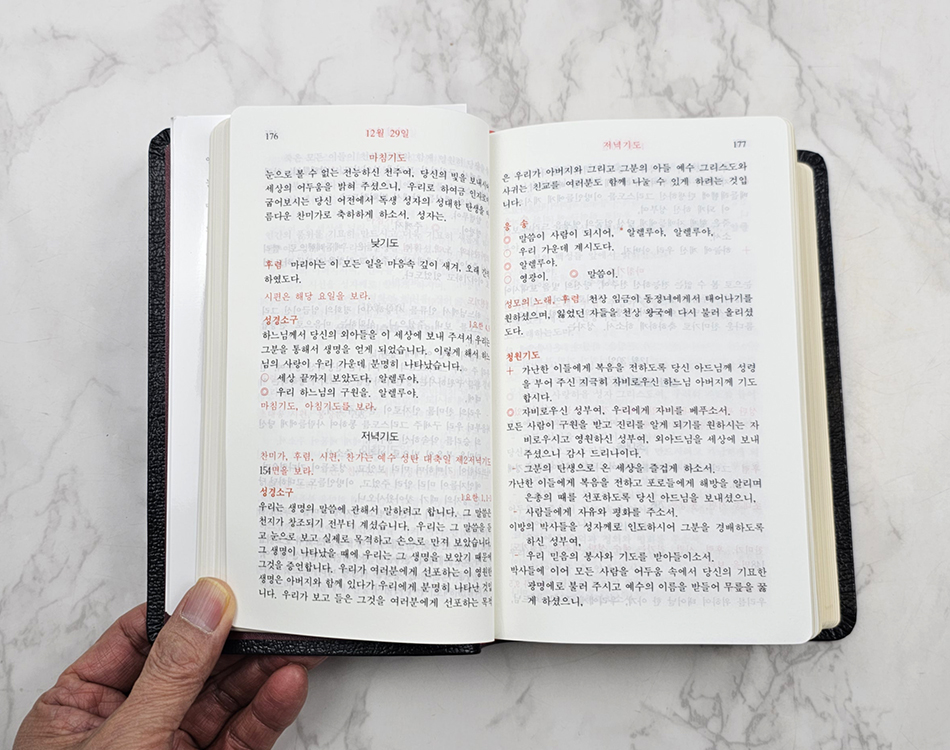 176 12월 29일
마침기도
눈으로 볼 수 없는 전능하신 천주여, 당신의 빛을 보내시어
세상의 어두움을 밝혀 주셨으니, 우리로 하여금
굽어보시는 당신 어전에서 독생 성자의 성대한 탄생을
름다운 찬미가로 축하하게 하소서. 성자는.
낮기도
후렴 마리아는 이 모든 일을 마음속 깊이 새겨, 오래
하였도다.
시편은 해당 요일을 보라.
성경소구 1요한
하느님께서 당신의 외아들을 이 세상에 보내 주셔서 우리는
그분을 통해서 생명을 얻게 되었습니다. 이렇게 해서
님의 사랑이 우리 가운데 분명히 나타났습니다.
세상 끝까지 보았도다, 알렐루야.
우리 하느님의 구원을, 알렐루야.
마침기도, 아침기도를 보라.
저녁기도
찬미가, 후렴, 시편, 찬가는 예수 성탄 대축일 제2저녁기도
154면을 보라.
성경소구 1요한 1,1-
우리는 생명의 말씀에 관해서 말하려고 합니다. 그 말씀은
천지가 창조되기 전부터 계셨습니다. 우리는 그 말씀을 듣
고 눈으로 보고 실제로 목격하고 손으로 만져 보았습니다.
그 생명이 나타났을 때에 우리는 그 생명을 보았기 때문에
그것을 증언합니다. 우리가 여러분에게 선포하는 이 영원한
생명은 아버지와 함께 있다가 우리에게 분명히 나타난 것입
니다. 우리가 보고 들은 그것을 여러분에게 선포하는 목적
저녁기도 177
은 우리가 아버지와 그리고 그분의 아들 예수 그리스도와
사귀는 친교를 여러분도 함께 나눌 수 있게 하려는 것입
니다.
응 송
말씀이 사람이 되시어, * 알렐루야, 알렐루야.
우리 가운데 계시도다.
알렐루야.
영광이. 말씀이.
성모의 노래, 후렴 천상 임금이 동정녀에게서 태어나기를
원하셨으며, 잃었던 자들을 천상 왕국에 다시 불러 올리셨
도다.
청원기도
+ 가난한 이들에게 복음을 전하도록 당신 아드님께 성령
을 부어 주신 지극히 자비로우신 하느님 아버지께 기도
합시다.
자비로우신 성부여, 우리에게 자비를 베푸소서.
모든 사람이 구원을 받고 진리를 알게 되기를 원하시는 자
비로우시고 영원하신 성부여, 외아드님을 세상에 보내
주셨으니 감사 드리나이다.
- 그분의 탄생으로 온 세상을 즐겁게 하소서.
가난한 이들에게 복음을 전하고 포로들에게 해방을 알리며
은총의 때를 선포하도록 당신 아드님을 보내셨으니,
- 사람들에게 자유와 평화를 주소서.
이방의 박사들을 성자께로 인도하시어 그분을 경배하도록
하신 성부여,
- 우리 믿음의 봉사와 기도를 받아들이소서.
박사들에 이어 모든 사람을 어두움 속에서 당신의 기묘한
광명에로 불러 주시고 예수의 이름을 받들어 무릎을 꿇
게 하셨으니,